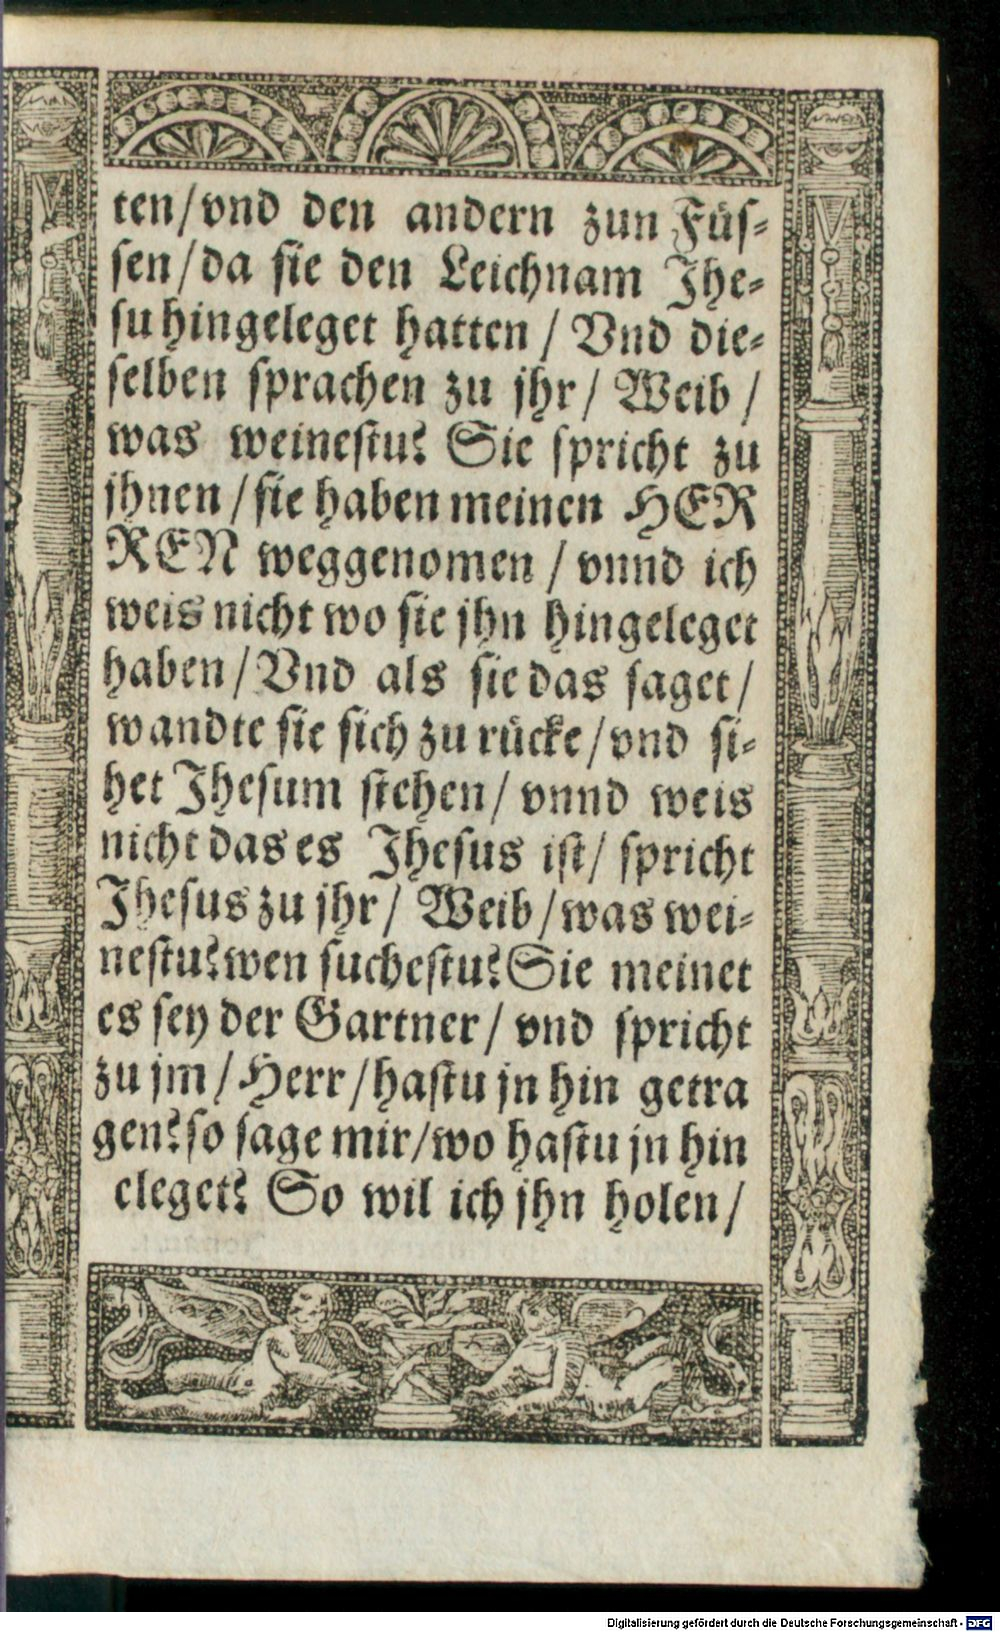 ten/vnd den andern zun Füs-
sen/da sie den Leichnam Jhe-
su hingeleget hatten / Vnd die-
selben sprachen zu jhr/ Weib /
was weinestu? Sie spricht zu
jhnen / sie haben meinen HER
REN weggenomen / vnnd ich
weis nicht wo sie jhn hingeleget
haben/ Vnd als sie das saget/
wandte sie sich zu rücke/vnd si-
het Jhesum stehen/ vnnd weis
nicht das es Jhesus ist/ spricht
Jhesus zu jhr/ Weib/was wei-
nestu? wen suchestu? Sie meinet
es sey der Gartner/ vnd spricht
zu jm / Herr/hastu jn hin getra
gen? so sage mir/wo hastu jn hin
eleget? So wil ich jhn holen/
Digitalisierung gefördert durch die Deutsche Forschungsgemeinschaft - DFG